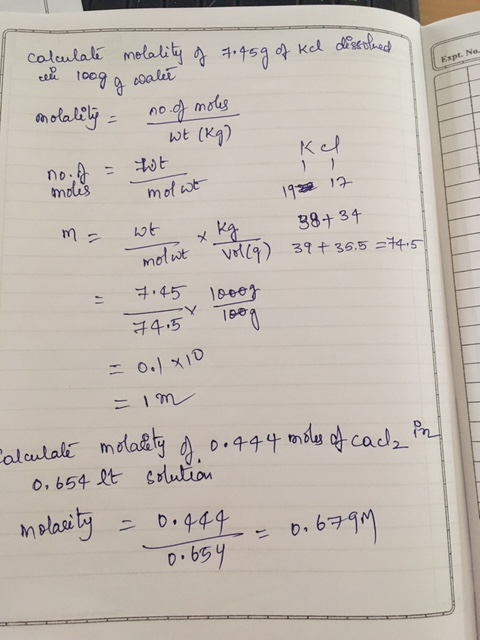 Calculate molality of 7.45g of Kcl dissolved
in 100g g water
Expt. No.
molality = no. of moles / wt (Kg)
no. of moles = wt / mol wt
K cl
19 17
38 + 34
39 + 35.5 = 74.5
m = wt / mol wt × Kg / Vol(g)
= 7.45 / 74.5 × 1000g / 100g
= 0.1 × 10
= 1 m
Calculate molarity of 0.444 moles of cacl2 in
0.654 lt solution
molarity = 0.444 / 0.654 = 0.679M